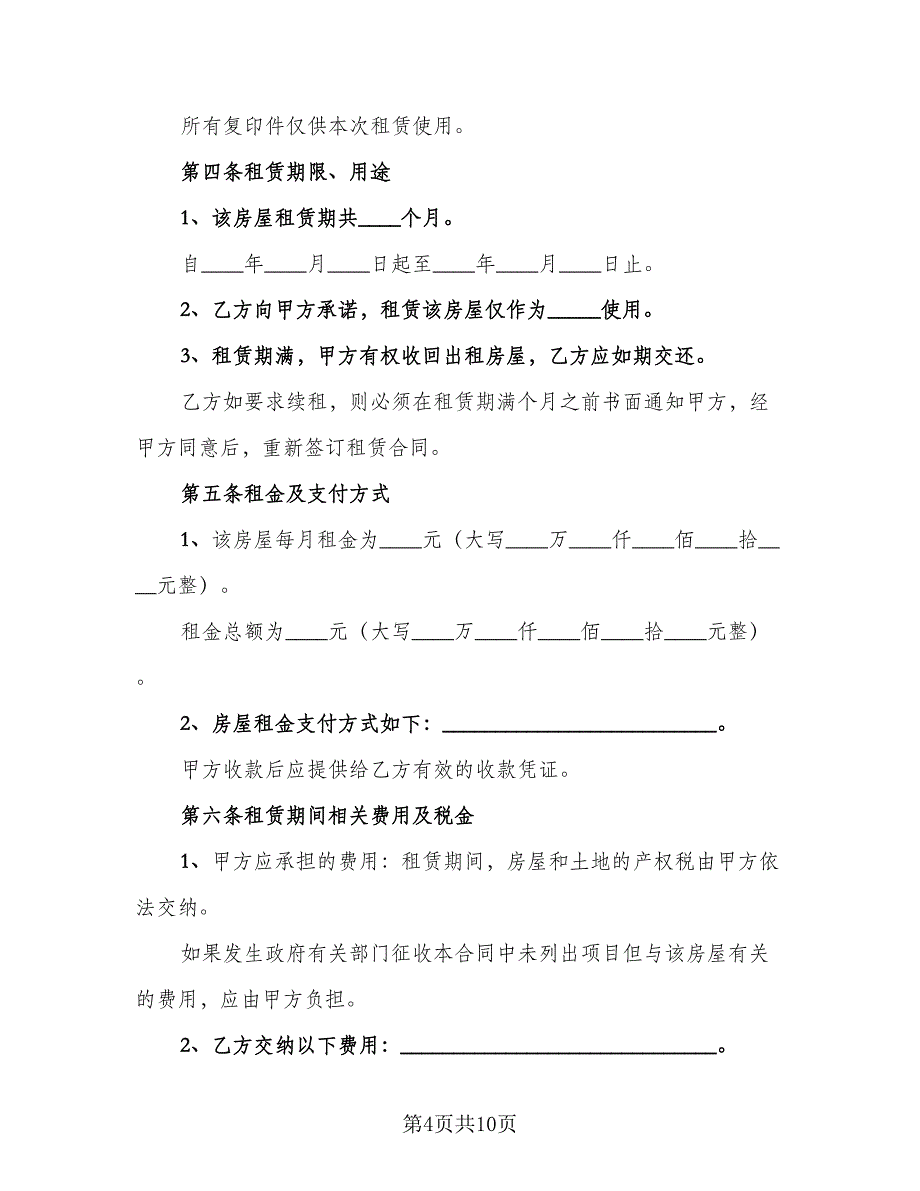 所有复印件仅供本次租赁使用。
第四条租赁期限、用途
1、该房屋租赁期共____个月。
自____年____月____日起至____年____月____日止。
2、乙方向甲方承诺，租赁该房屋仅作为_____使用。
3、租赁期满，甲方有权收回出租房屋，乙方应如期交还。
乙方如要求续租，则必须在租赁期满个月之前书面通知甲方，经
甲方同意后，重新签订租赁合同。
第五条租金及支付方式
1、该房屋每月租金为____元（大写____万____仟____佰____拾__
__元整）。
租金总额为____元（大写____万____仟____佰____拾____元整）
。
2、房屋租金支付方式如下：__________________________。
甲方收款后应提供给乙方有效的收款凭证。
第六条租赁期间相关费用及税金
1、甲方应承担的费用：租赁期间，房屋和土地的产权税由甲方依
法交纳。
如果发生政府有关部门征收本合同中未列出项目但与该房屋有关
的费用，应由甲方负担。
2、乙方交纳以下费用：______________________________。
第4页共10页